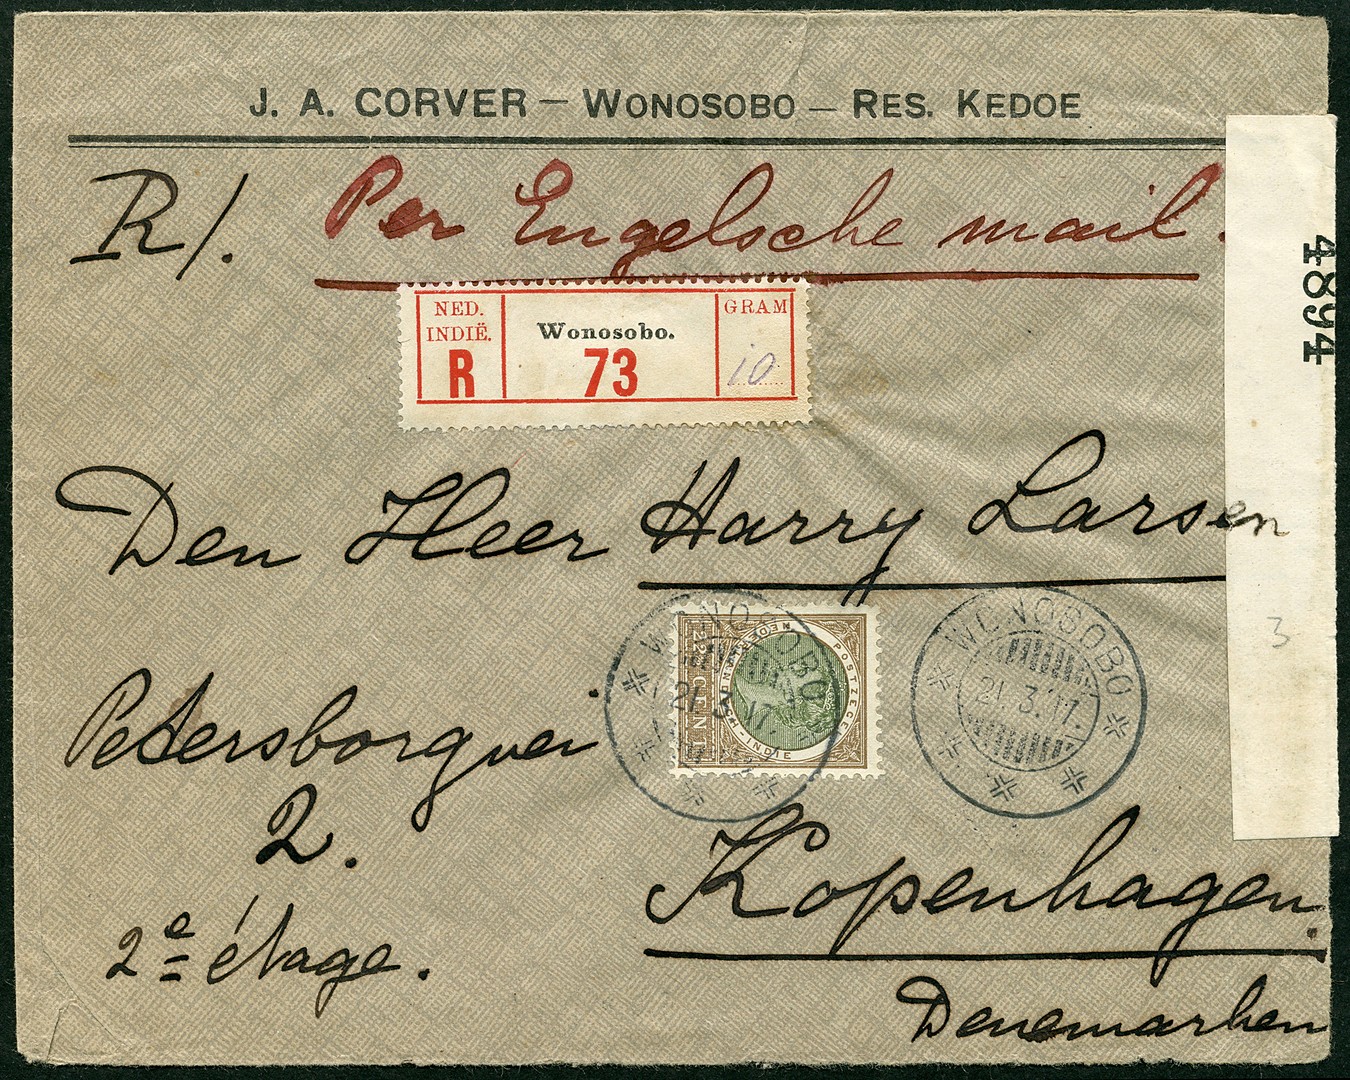 J. A. CORVER – WONOSOBO – RES. KEDOE
R/. Per Engelsche mail.
4894
NED. INDIË.
R
Wonosobo.
73
GRAM
10
Den Heer Harry Larsen
3
WONOSOBO
21.3.17
NEDERL.
POSTZEGEL
INDIE
22½ CENT
WONOSOBO
21.3.17.
Petersborgvei
2.
2e étage.
Kopenhagen.
Denemarken